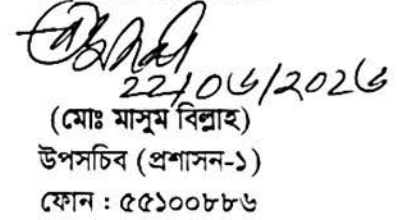 ২২/০৬/২০২৬
(মোঃ মাসুম বিল্লাহ)
উপসচিব (প্রশাসন-১)
ফোন : ৫৫১০০৮৮৬